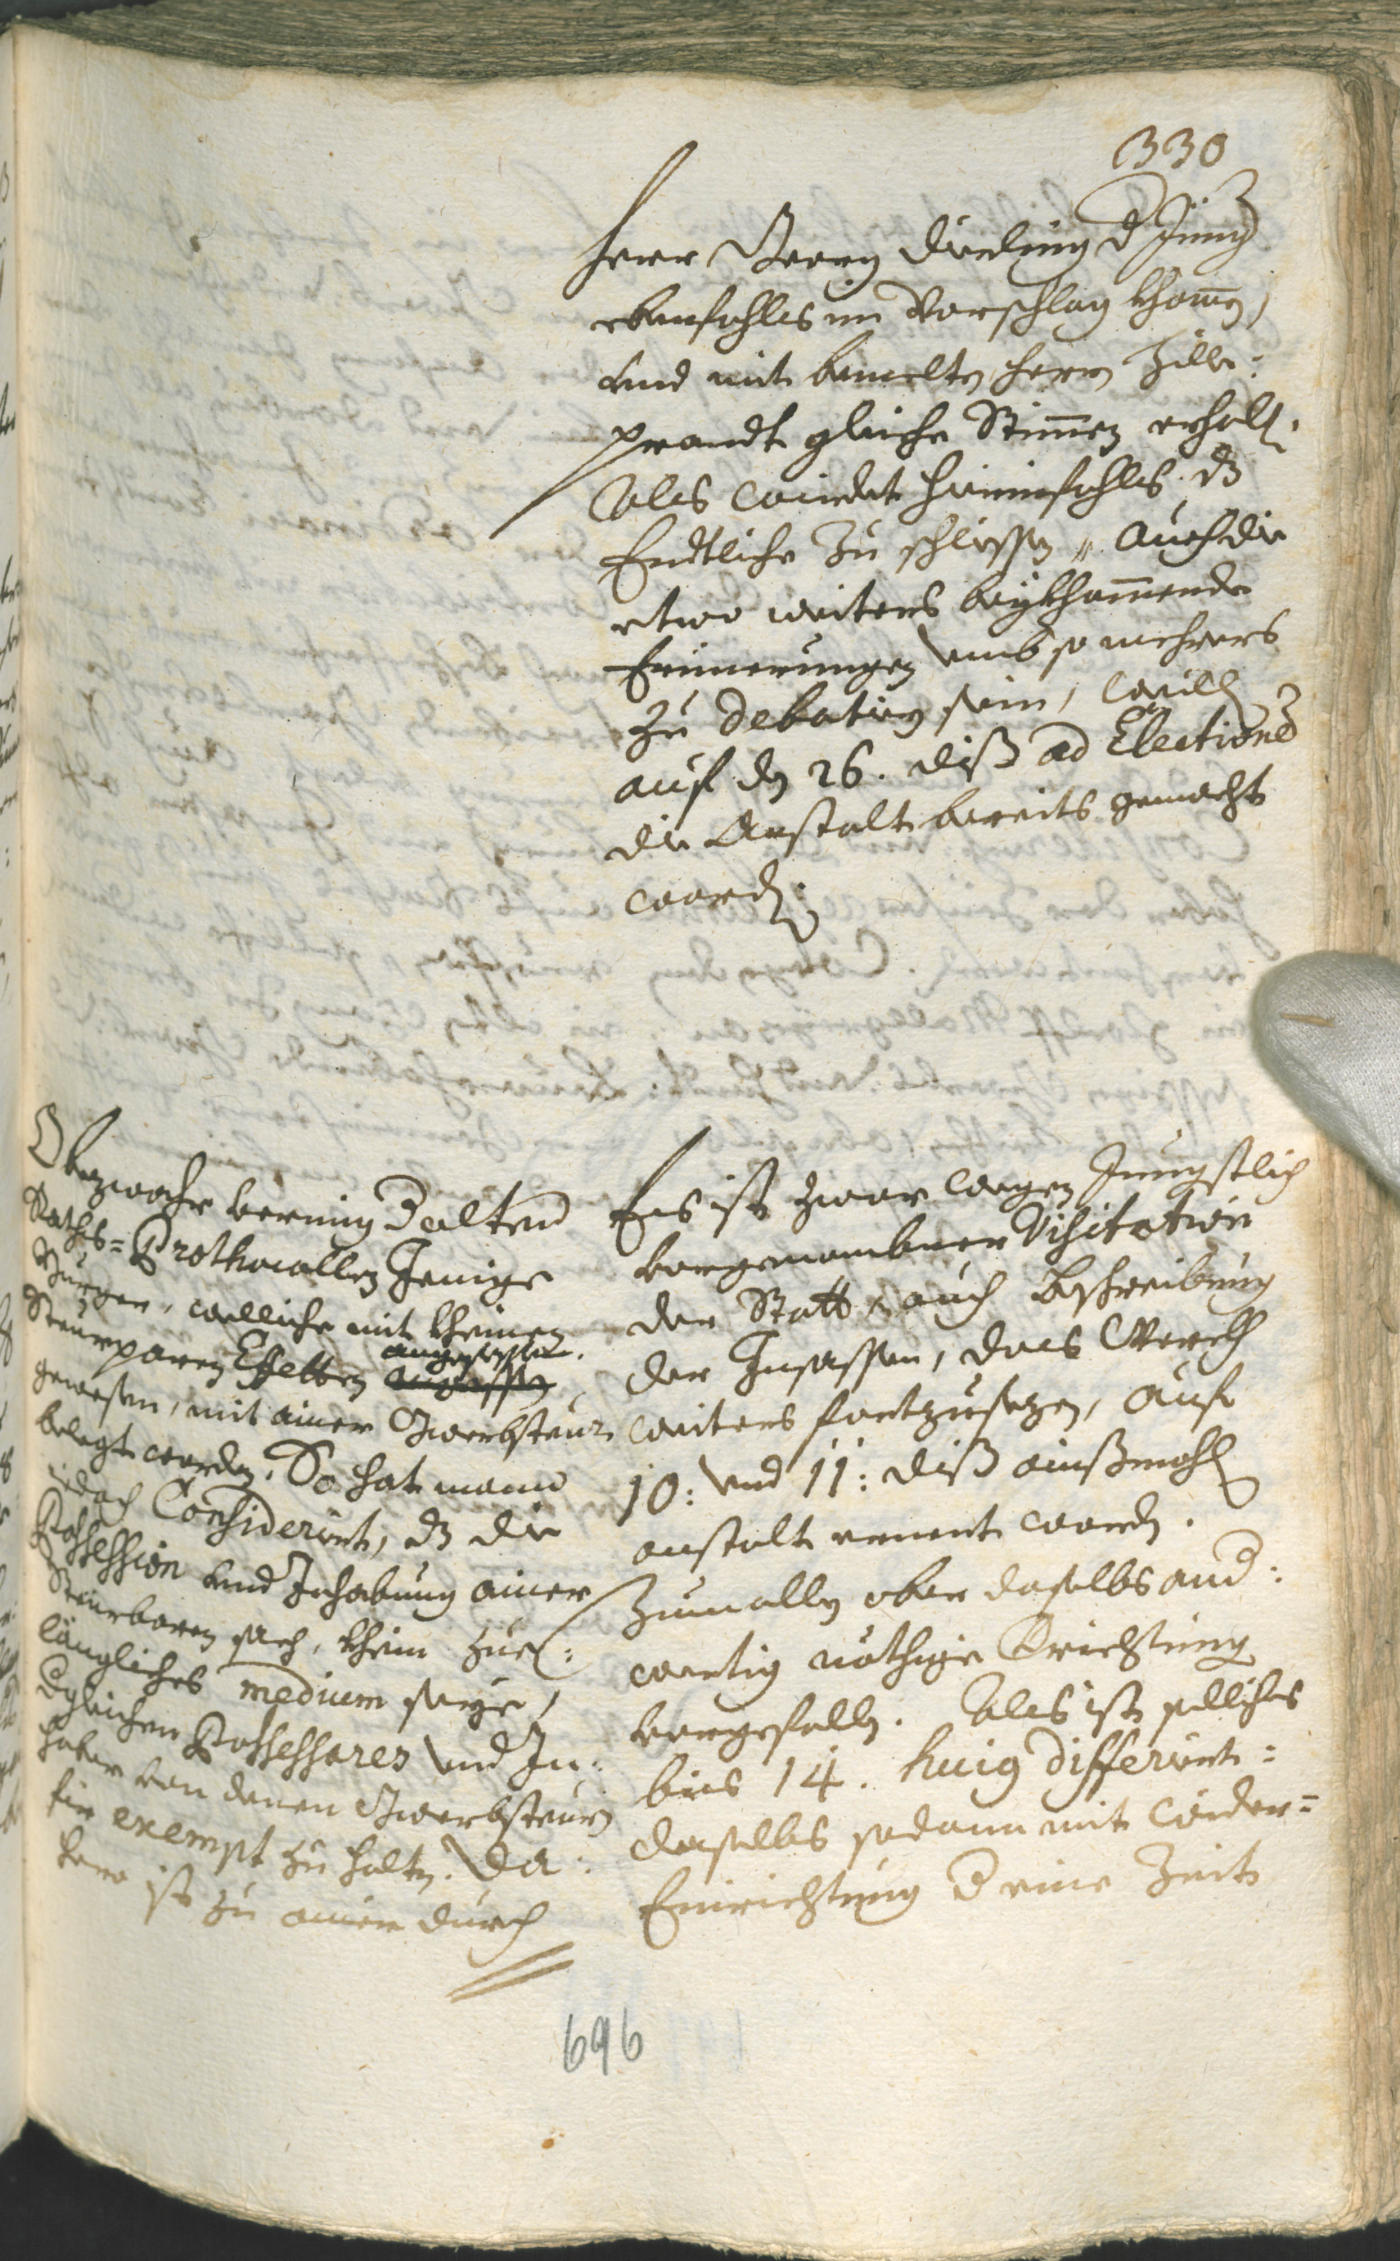 330
Herr Georg Dierling d Jung
ebenfahls in Vorschlag khom̄en,
und mit bemelten herrn Hille¬
prandt gleiche Stim̄en erhalten.
Als wirdet hierinfahls dz
Endtliche zu schlüssen, Auch die
etwo weiters beykhom̄ende
Erinnerungen umb so mehrers
zu debatirn sein, weilen
auf den 26. diß ad Electionem
die Anstalt bereits gemacht
worden.
Obzwahr vermüg alten
Raths=Prothocollen Jenige
Bürger, welliche mit kheinen
Steurparen Effecten angesessen
gewesen, mit ainer Gwerbsteur
belegt worden. So hat mann
jedoch Considerirt, dz die
Possession und Inhabung ainer
Steurbaren sach, khein zue¬
längliches medium seye,
dgleichen Possessores und In¬
haber von denen Gwerbsteurn
für exempt zu halten. Da¬
hero ist zu ainer durch
Es ist zwar wegen Jüngstlich
vorgenombner Visitation
der Statt, auch Beschreibung
der Insassen, das Werch
weiters fortzusezen, auf
10: und 11: diß ainßmahls
anstalt ernent worden.
Zumallen aber daselbs and¬
wertig nöthige Verrichtung
vorgefallen. Als ist selliches
bis 14. huig differirt=
daselbs sodann mit wider=
Einrichtung d eine Zeit
696